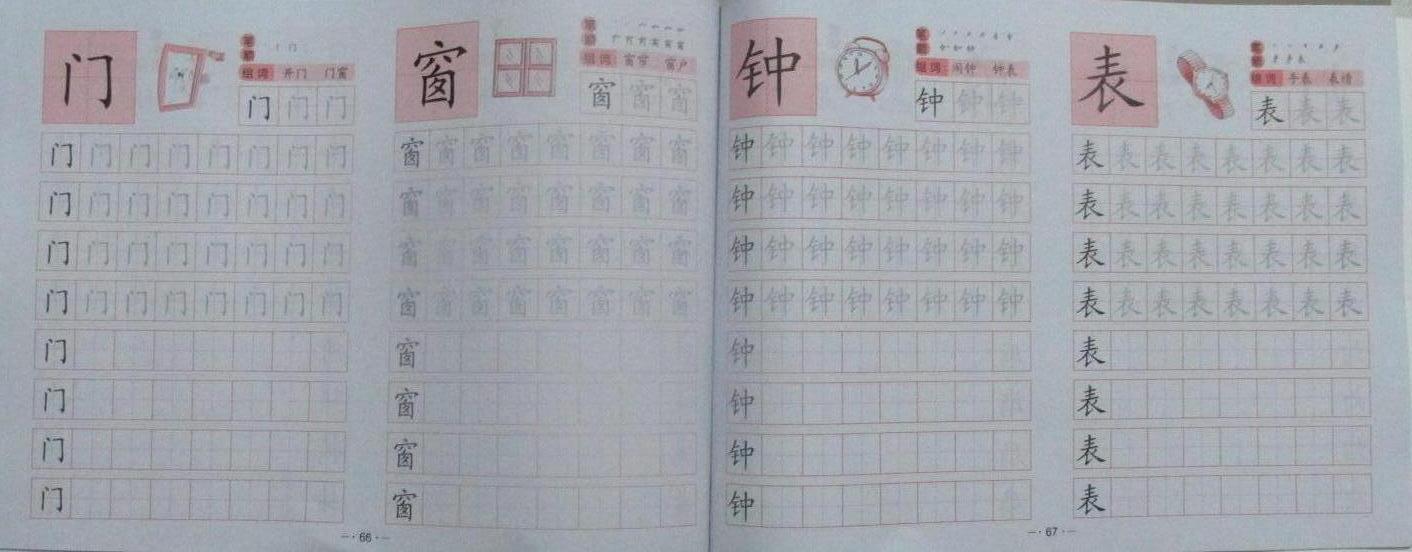 门
笔顺
组词 开门 门窗
门门门
门门门门门门门门
门门门门门门门门
门门门门门门门门
门门门门门门门门
门
门
门
门
窗
笔顺
组词 窗帘 窗户
窗窗窗
窗窗窗窗窗窗窗窗
窗窗窗窗窗窗窗窗
窗窗窗窗窗窗窗窗
窗窗窗窗窗窗窗窗
窗
窗
窗
窗
·66·
钟
笔顺
组词 闹钟 钟表
钟钟钟
钟钟钟钟钟钟钟钟
钟钟钟钟钟钟钟钟
钟钟钟钟钟钟钟钟
钟钟钟钟钟钟钟钟
钟
钟
钟
钟
表
笔顺
组词 手表 表情
表表表
表表表表表表表表
表表表表表表表表
表表表表表表表表
表表表表表表表表
表
表
表
表
·67·